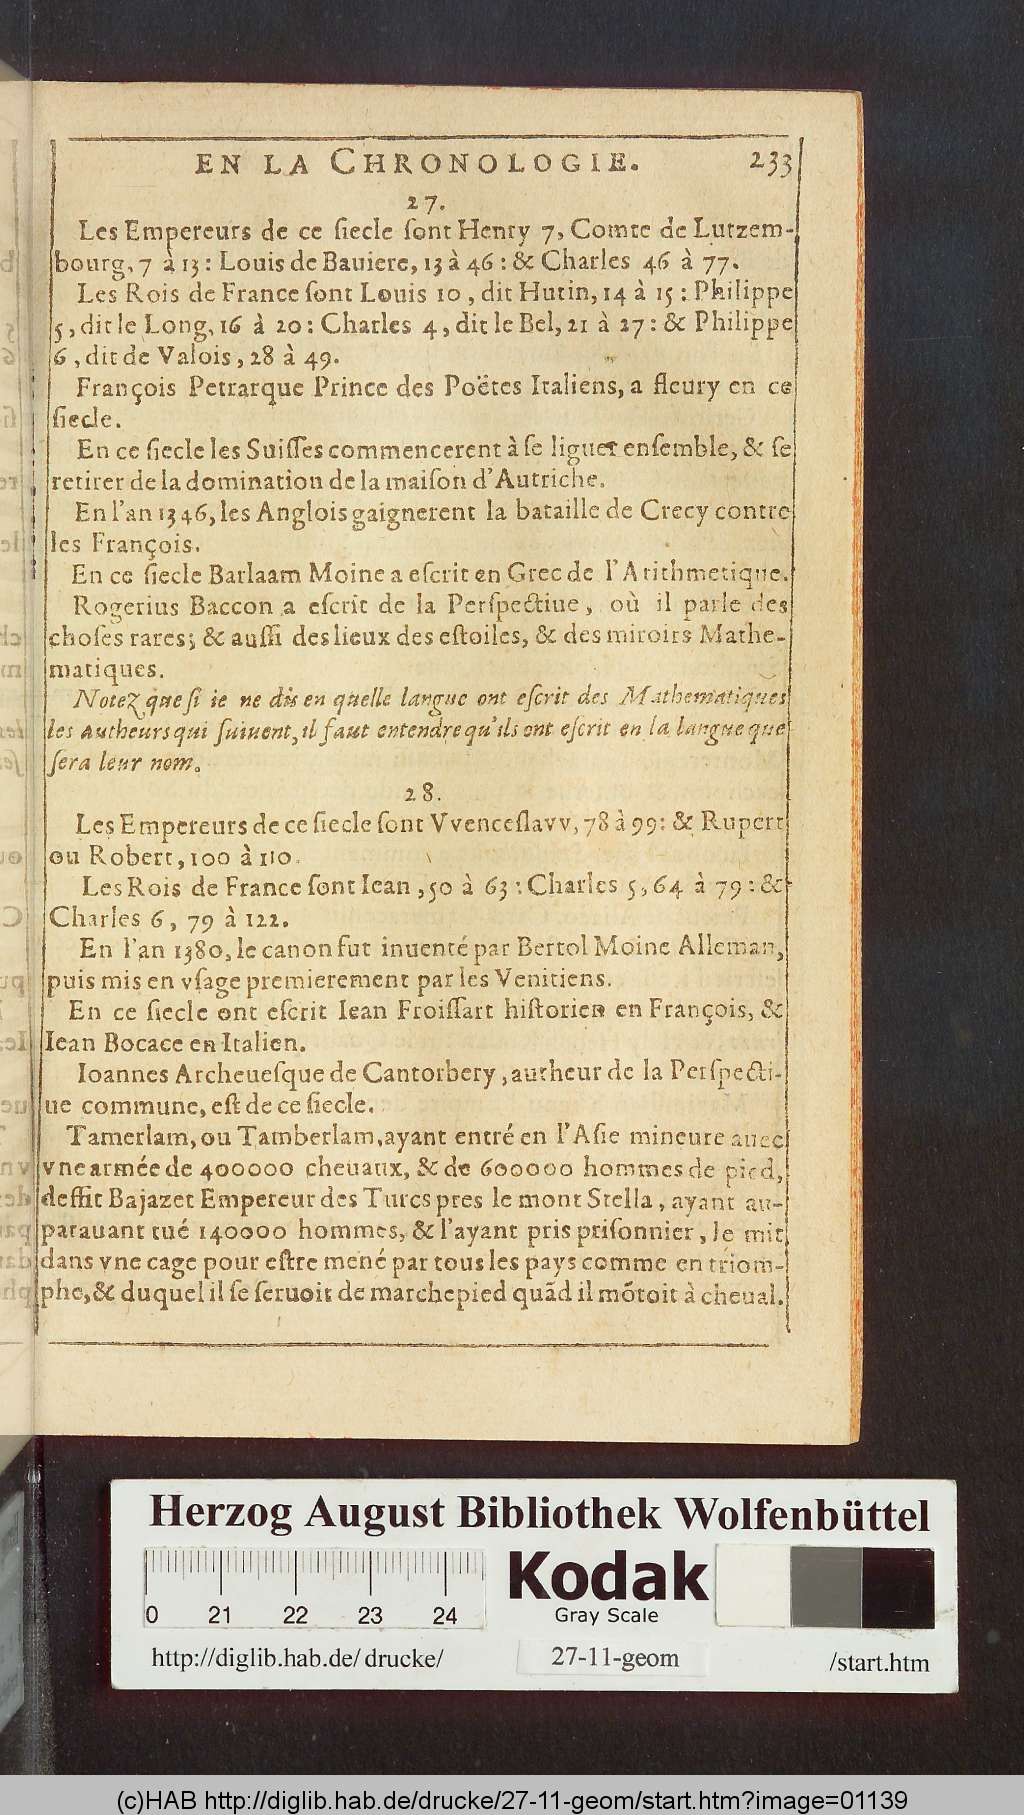 EN LA CHRONOLOGIE. 233
27.
Les Empereurs de ce ſiecle ſont Henry 7, Comte de Lutzem-
bourg, 7 à 13 : Louis de Bauiere, 13 à 46 : & Charles 46 à 77.
Les Rois de France ſont Louis 10, dit Hutin, 14 à 15 : Philippe
5, dit le Long, 16 à 20 : Charles 4, dit le Bel, 21 à 27 : & Philippe
6, dit de Valois, 28 à 49.
François Petrarque Prince des Poëtes Italiens, a fleury en ce
ſiecle.
En ce ſiecle les Suiſſes commencerent à ſe liguer enſemble, & ſe
retirer de la domination de la maiſon d'Autriche.
En l'an 1346, les Anglois gaignerent la bataille de Crecy contre
les François.
En ce ſiecle Barlaam Moine a eſcrit en Grec de l'Arithmetique.
Rogerius Baccon a eſcrit de la Perſpectiue, où il parle des
choſes rares; & auſſi des lieux des eſtoiles, & des miroirs Mathe-
matiques.
Notez que ſi ie ne dis en quelle langue ont eſcrit des Mathematiques
les Autheurs qui ſuiuent, il faut entendre qu'ils ont eſcrit en la langue que
ſera leur nom.
28.
Les Empereurs de ce ſiecle ſont Vvenceſlavv, 78 à 99 : & Rupert
ou Robert, 100 à 110.
Les Rois de France ſont Iean, 50 à 63 : Charles 5, 64 à 79 : &
Charles 6, 79 à 122.
En l'an 1380, le canon fut inuenté par Bertol Moine Alleman,
puis mis en vſage premierement par les Venitiens.
En ce ſiecle ont eſcrit Iean Froiſſart hiſtorien en François, &
Iean Bocace en Italien.
Ioannes Archeueſque de Cantorbery, autheur de la Perſpecti-
ue commune, eſt de ce ſiecle.
Tamerlam, ou Tamberlam, ayant entré en l'Aſie mineure auec
vne armée de 400000 cheuaux, & de 600000 hommes de pied,
deffit Bajazet Empereur des Turcs pres le mont Stella, ayant au-
parauant tué 140000 hommes, & l'ayant pris priſonnier, le mit
dans vne cage pour eſtre mené par tous les pays comme en triom-
phe, & duquel il ſe ſeruoit de marchepied quãd il mõtoit à cheual.
Herzog August Bibliothek Wolfenbüttel
Kodak
Gray Scale
0 21 22 23 24
http://diglib.hab.de/drucke/ 27-11-geom /start.htm
(c)HAB http://diglib.hab.de/drucke/27-11-geom/start.htm?image=01139